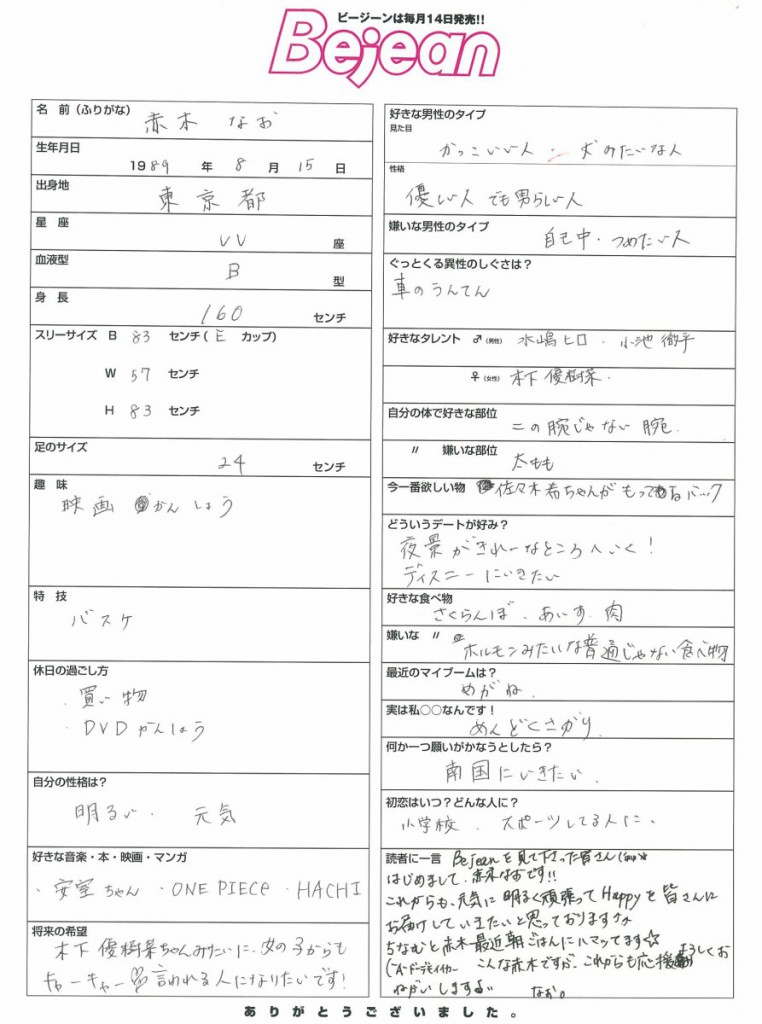 ビージーンは毎月14日発売!!
Bejean
名 前（ふりがな） 赤木 なお
生年月日
1989 年 8 月 15 日
出身地 東京都
星 座 VV 座
血液型 B 型
身 長 160 センチ
スリーサイズ B 83 センチ（E カップ）
W 57 センチ
H 83 センチ
足のサイズ 24 センチ
趣 味
映画 かんしょう
特 技
バスケ
休日の過ごし方
・買い物
・DVDかんしょう
自分の性格は？
明るい、 元気
好きな音楽・本・映画・マンガ
・安室ちゃん ・ONE PIECE ・HACHI
将来の希望
木下優樹菜ちゃんみたいに、女の子からも
キャーキャー言われる人になりたいです！
好きな男性のタイプ
見た目
かっこいい人 ・ 犬みたいな人
性格
優しい人 でも男らしい人
嫌いな男性のタイプ
自己中・つめたい人
ぐっとくる異性のしぐさは？
車のうんてん
好きなタレント ♂（男性） 水嶋ヒロ ・ 小池徹平
♀（女性） 木下優樹菜
自分の体で好きな部位
二の腕じゃない腕
〃 嫌いな部位
太もも
今一番欲しい物 佐々木希ちゃんがもってるバック
どういうデートが好み？
夜景がきれーなところへいく！
ディズニーにいきたい
好きな食べ物
さくらんぼ、あいす、肉
嫌いな 〃 ホルモンみたいな普通じゃない食べ物
最近のマイブームは？
めがね
実は私○○なんです！
めんどくさがり
何か一つ願いがかなうとしたら？
南国にいきたい
初恋はいつ？どんな人に？
小学校、スポーツしてる人に、
読者に一言 Bejeanを見て下さった皆さん
はじめまして、赤木なおです!!
これからも、元気に明るく頑張ってHappyを皆さんに
お届けしていきたいと思っております
ちなむと赤木最近朝ごはんにハマってます☆
こんな赤木ですが、これからも応援よろしくお
ねがいします なお。
ありがとうございました。